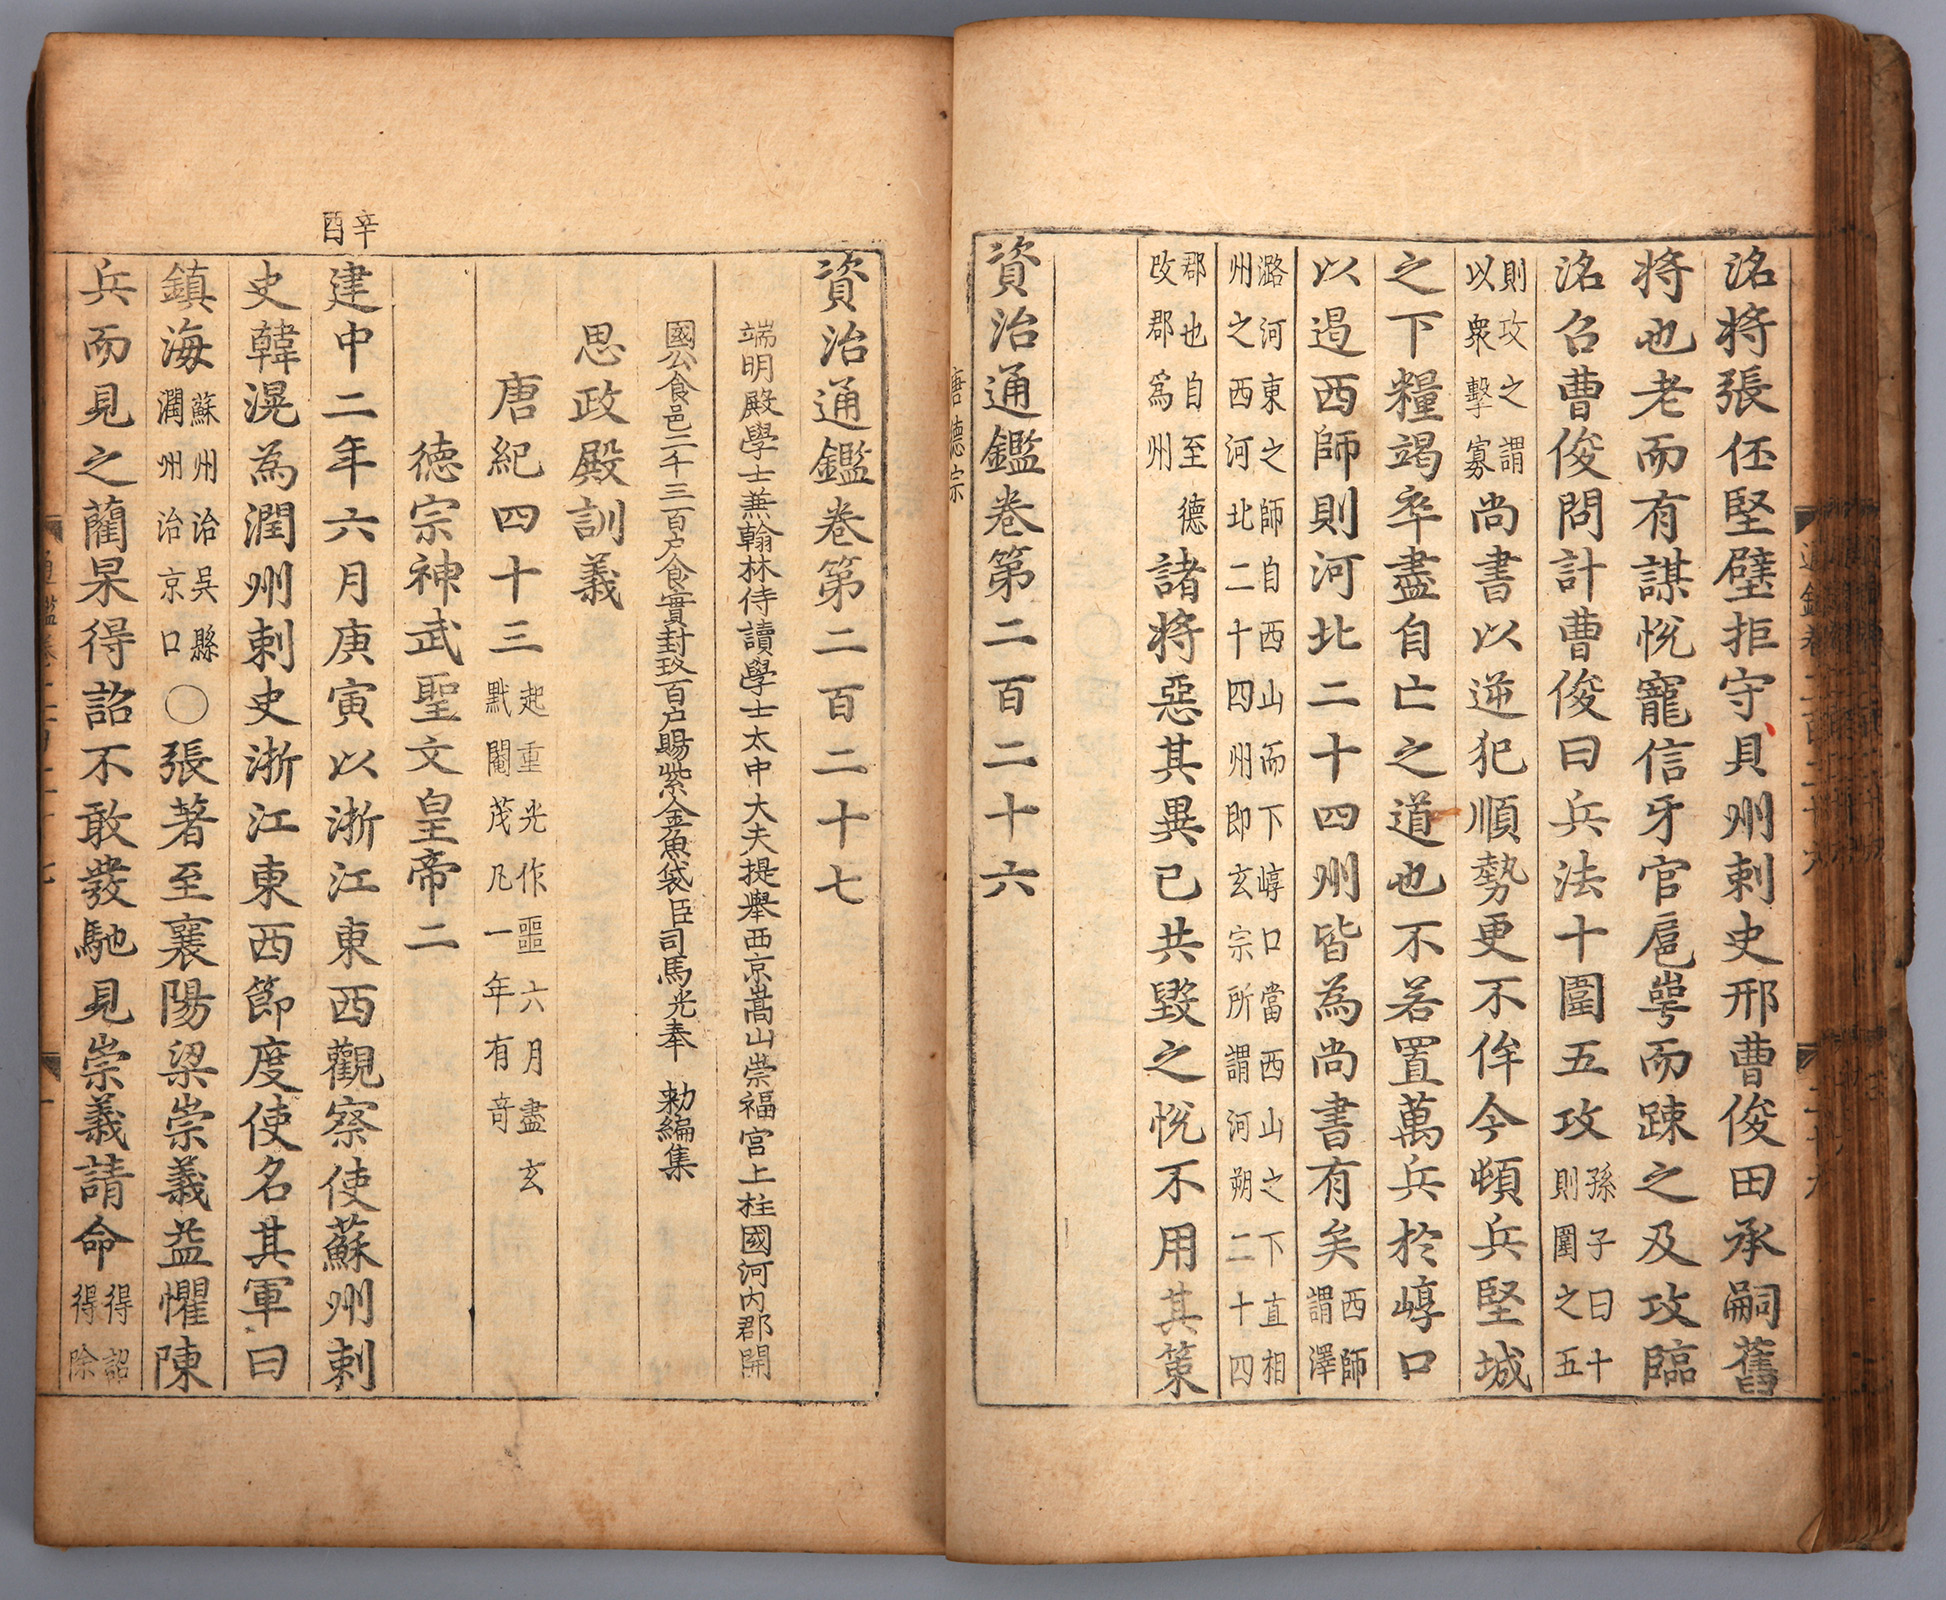 洺將張伾堅壁拒守貝州刺史邢曹俊田承嗣舊
將也老而有謀悅寵信牙官扈崿而踈之及攻臨
洺召曹俊問計曹俊曰兵法十圍五攻孫子曰十則圍之五
則攻之謂以衆擊寡尚書以逆犯順勢更不侔今頓兵堅城
之下糧竭卒盡自亡之道也不若置萬兵於崞口
以遏西師則河北二十四州皆為尚書有矣西師謂澤
潞河東之師自西山而下崞口當西山之下直相州之西河北二十四州即玄宗所謂河朔二十四
郡也自至德改郡爲州諸將惡其異己共毀之悅不用其策
資治通鑑卷第二百二十六
唐德宗
資治通鑑卷第二百二十七
端明殿學士兼翰林侍讀學士太中大夫提舉西京嵩山崇福宮上柱國河內郡開
國公食邑二千三百户食實封玖百户賜紫金魚袋臣司馬光奉 勑編集
思政殿訓義
唐紀四十三起重光作噩六月盡玄黓閹茂凡一年有奇
德宗神武聖文皇帝二
辛酉
建中二年六月庚寅以浙江東西觀察使蘇州刺
史韓滉為潤州刺史浙江東西節度使名其軍曰
鎮海蘇州治吳縣潤州治京口○張著至襄陽梁崇義益懼陳
兵而見之藺杲得詔不敢發馳見崇義請命得詔得除